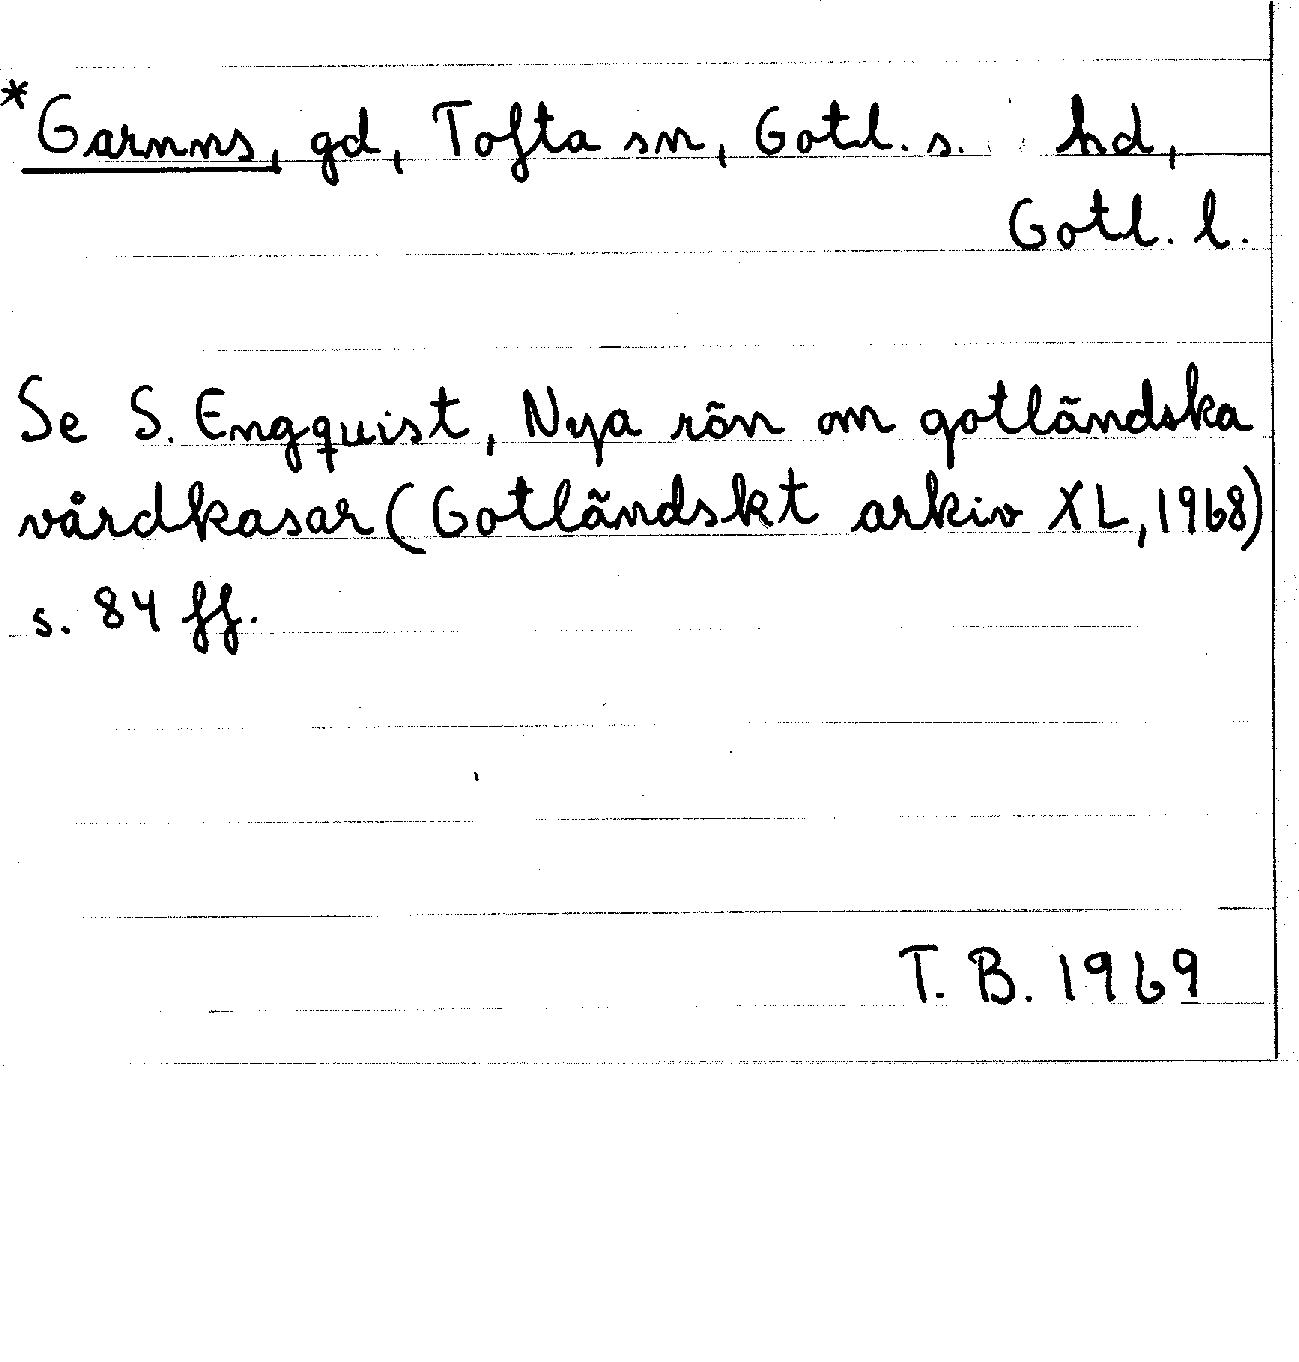 *Garnns, gd, Tofta sn, Gotl. s. hd,
Gotl. l.
Se S. Engquist, Nya rön om gotländska
vårdkasar (Gotländskt arkiv XL, 1968)
s. 84 ff.
T. B. 1969